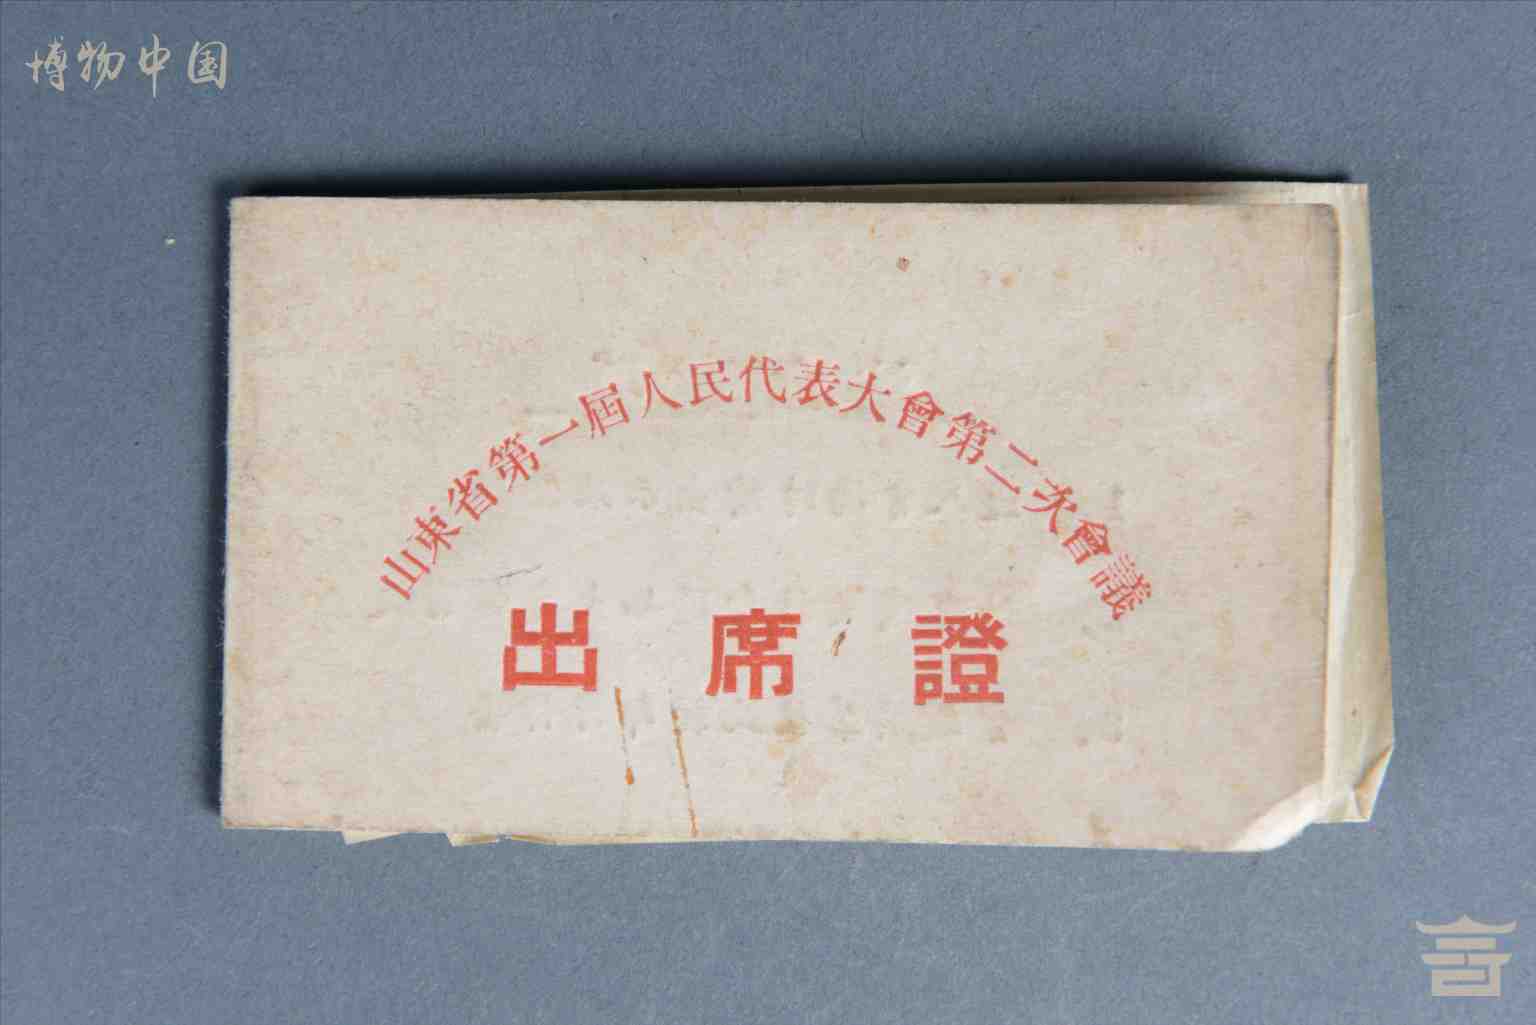 博物中国
山東省第一屆人民代表大會第二次會議
出席證